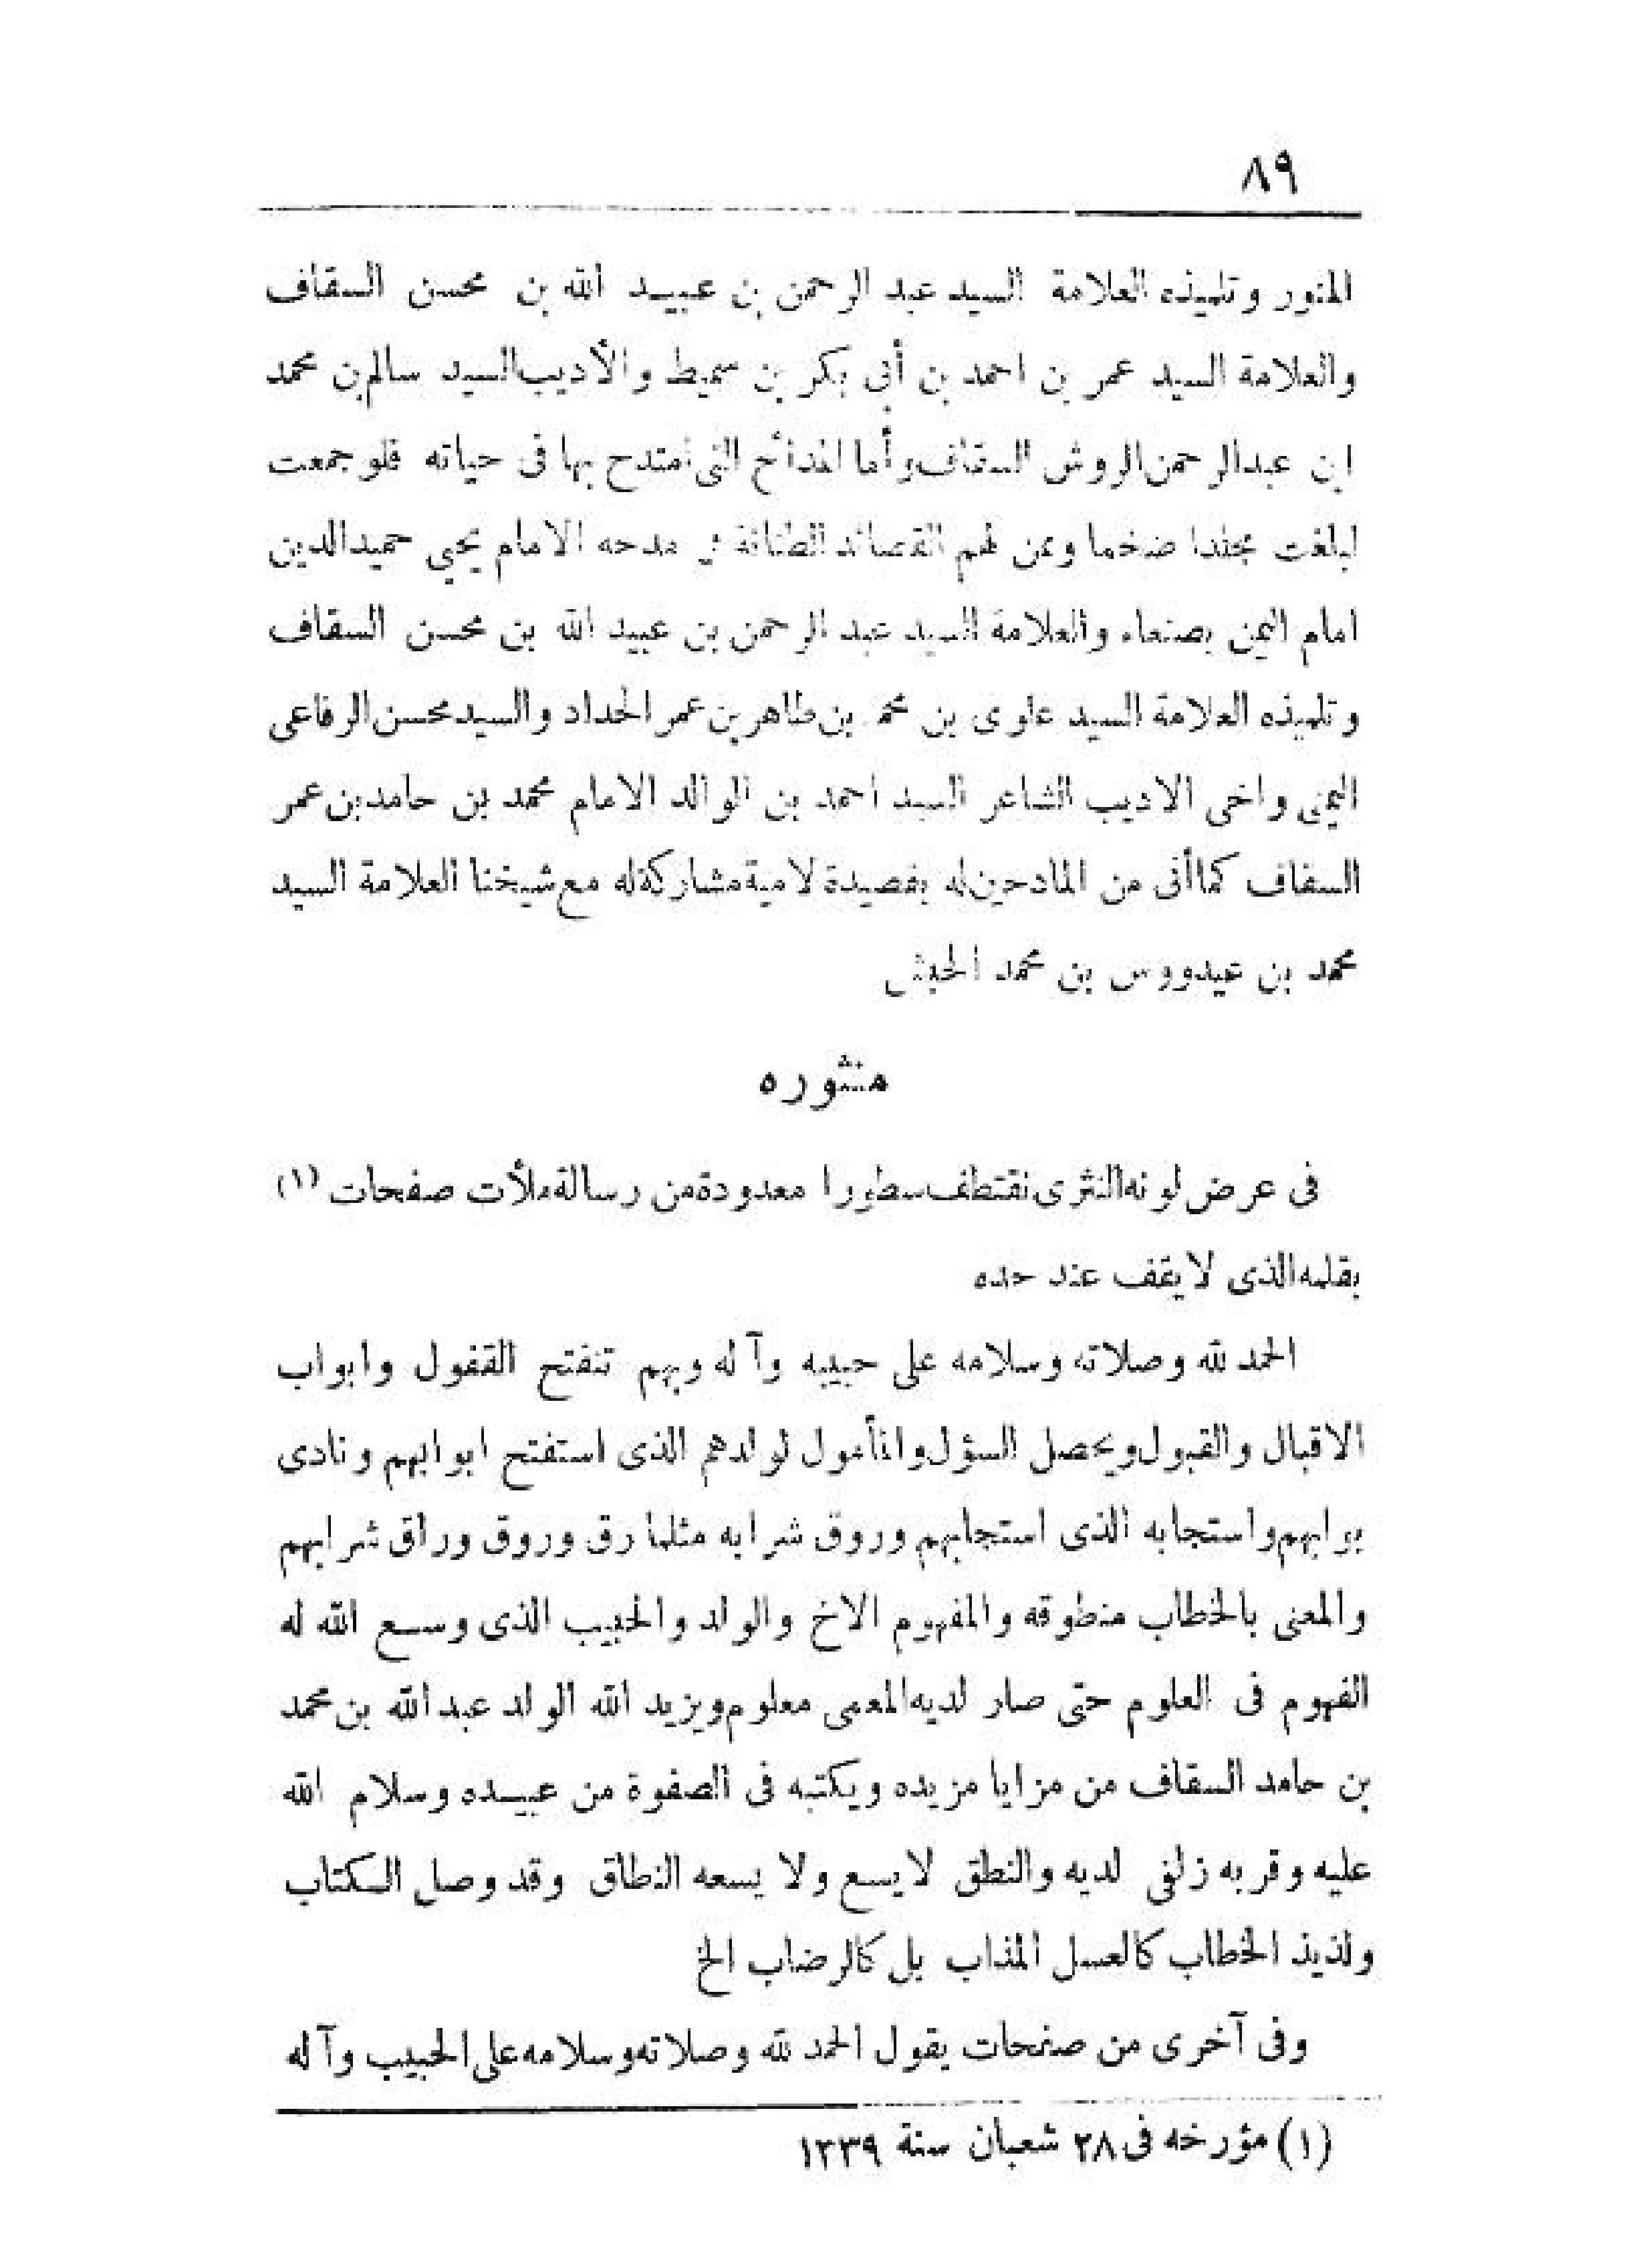 ٨٩
المنور وتلميذه العلامة السيد عبد الرحمن بن عبيد الله بن محسن السقاف
والعلامة السيد عمر بن احمد بن أبى بكر بن سميط والأديب السيد سالم بن محمد
ابن عبدالرحمن الروش السقاف وأما المدائح التى امتدح بها فى حياته فلو جمعت
لبلغت مجلدا ضخما وممن لهم القصائد الطنانة فى مدحه الامام يحيي حميدالدين
امام اليمن بصنعاء والعلامة السيد عبد الرحمن بن عبيد الله بن محسن السقاف
وتلميذه العلامة السيد علوى بن محمد بن طاهر بن عمر الحداد والسيد محسن الرفاعى
اليمنى واخى الاديب الشاعر السيد احمد بن الوالد الامام محمد بن حامد بن عمر
السقاف كما أنى من المادحين له بقصيدة لامية مشاركة له مع شيخنا العلامة السيد
محمد بن عيدروس بن محمد الحبشى
منثوره
فى عرض لونه النثرى نقتطف سطورا معدودة من رسالة ملأت صفحات (١)
بقلمه الذى لا يقف عند حده
الحمد لله وصلاته وسلامه على حبيبه وآله وبهم تنفتح القفول وابواب
الاقبال والقبول ويحصل السؤل والمأمول لولدهم الذى استفتح ابوابهم ونادى
بوابهم واستجابه الذى استجابهم وروق شرابه مثلما رق وروق وراق شرابهم
والمعنى بالخطاب منطوقه والمفهوم الاخ والولد والحبيب الذى وسع الله له
الفهوم فى العلوم حتى صار لديه المعمى معلوم ويزيد الله الولد عبد الله بن محمد
بن حامد السقاف من مزايا مزيده ويكتبه فى الصفوة من عبيده وسلام الله
عليه وقربه زلفى لديه والنطق لا يسع ولا يسعه النطاق وقد وصل الكتاب
ولذيذ الخطاب كالعسل المذاب بل كالرضاب الخ
وفى آخرى من صفحات يقول الحمد لله وصلاته وسلامه على الحبيب وآله
(١) مؤرخه فى ٢٨ شعبان سنة ١٣٣٩